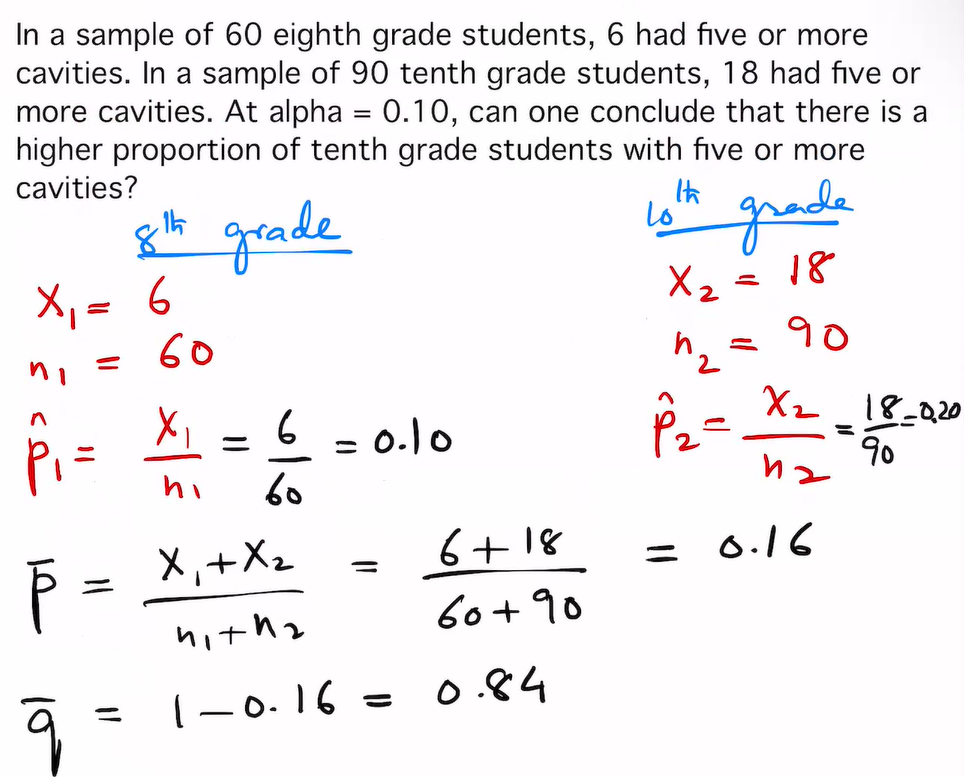 In a sample of 60 eighth grade students, 6 had five or more
cavities. In a sample of 90 tenth grade students, 18 had five or
more cavities. At alpha = 0.10, can one conclude that there is a
higher proportion of tenth grade students with five or more
cavities?
8th grade
x₁ = 6
n₁ = 60
p̂₁ = x₁/n₁ = 6/60 = 0.10
10th grade
x₂ = 18
n₂ = 90
p̂₂ = x₂/n₂ = 18/90 = 0.20
p̄ = x₁+x₂/n₁+n₂ = 6+18/60+90 = 0.16
q̄ = 1-0.16 = 0.84